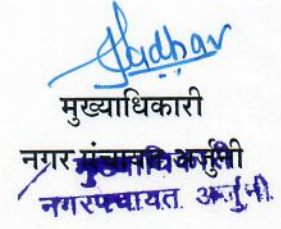 मुख्याधिकारी
नगर पंचायत अर्जुनी
मुख्याधिकारी
नगरपंचायत अर्जुनी